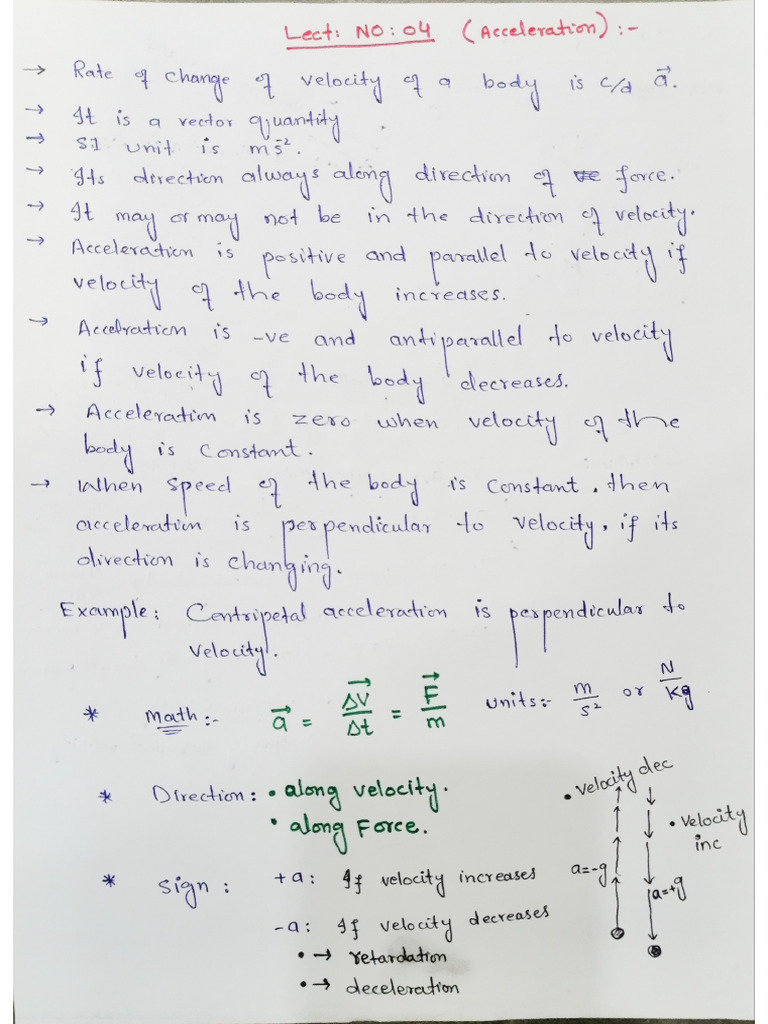 Lect: NO: 04 (Acceleration) :-
→ Rate of change of velocity of a body is c/d a⃗.
→ It is a vector quantity
→ SI unit is ms⁻².
→ Its direction always along direction of force.
→ It may or may not be in the direction of velocity.
→ Acceleration is positive and parallel to velocity if
velocity of the body increases.
→ Accelration is -ve and antiparallel to velocity
if velocity of the body decreases.
→ Acceleration is zero when velocity of the
body is constant.
→ When speed of the body is constant, then
acceleration is perpendicular to velocity, if its
direction is changing.
Example: Centripetal acceleration is perpendicular to
velocity.
* Math :- a⃗ = ΔV⃗/Δt = F⃗/m units:- m/s² or N/Kg
* Direction: • along velocity.
• along Force.
• velocity dec
• velocity inc
a=-g
a=+g
* Sign : +a: If velocity increases
-a: If velocity decreases
• → retardation
• → deceleration